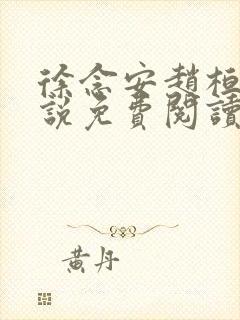 徐念安趙桓
說免費閱讀
黃丹